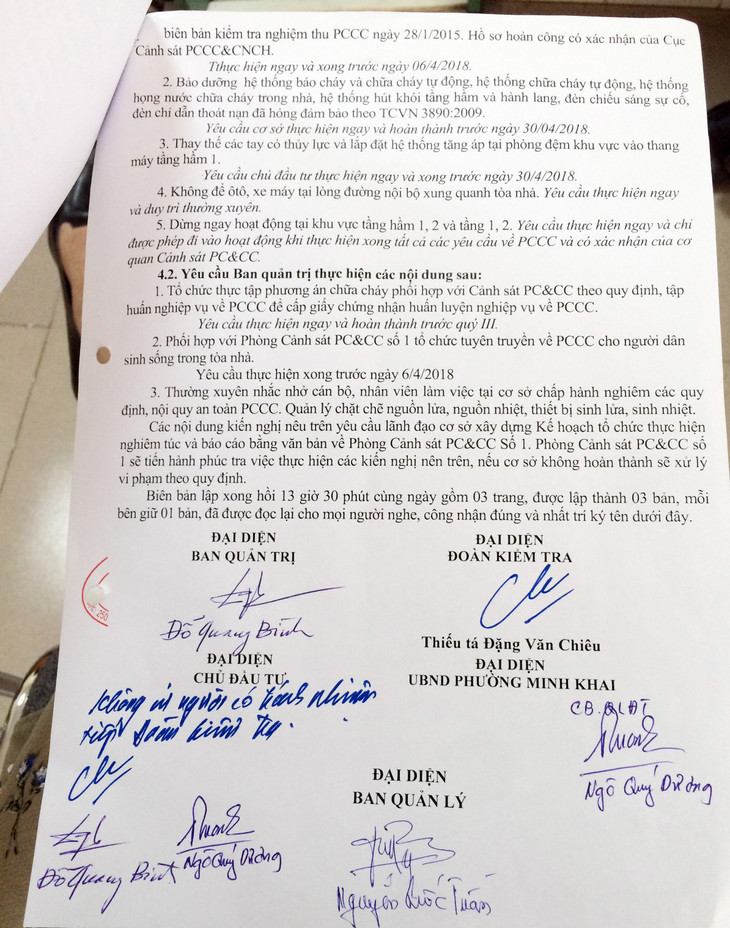 biên bản kiểm tra nghiệm thu PCCC ngày 28/1/2015. Hồ sơ hoàn công có xác nhận của Cục
Cảnh sát PCCC&CNCH.
Tthực hiện ngay và xong trước ngày 06/4/2018.
2. Bảo dưỡng hệ thống báo cháy và chữa cháy tự động, hệ thống chữa cháy tự động, hệ thống
họng nước chữa cháy trong nhà, hệ thống hút khói tầng hầm và hành lang, đèn chiếu sáng sự cố,
đèn chỉ dẫn thoát nạn đã hỏng đảm bảo theo TCVN 3890:2009.
Yêu cầu cơ sở thực hiện ngay và hoàn thành trước ngày 30/04/2018.
3. Thay thế các tay co thủy lực và lắp đặt hệ thống tăng áp tại phòng đệm khu vực vào thang
máy tầng hầm 1.
Yêu cầu chủ đầu tư thực hiện ngay và xong trước ngày 30/4/2018.
4. Không để ôtô, xe máy tại lòng đường nội bộ xung quanh tòa nhà. Yêu cầu thực hiện ngay
và duy trì thường xuyên.
5. Dừng ngay hoạt động tại khu vực tầng hầm 1, 2 và tầng 1, 2. Yêu cầu thực hiện ngay và chỉ
được phép đi vào hoạt động khi thực hiện xong tất cả các yêu cầu về PCCC và có xác nhận của cơ
quan Cảnh sát PC&CC.
4.2. Yêu cầu Ban quản trị thực hiện các nội dung sau:
1. Tổ chức thực tập phương án chữa cháy phối hợp với Cảnh sát PC&CC theo quy định, tập
huấn nghiệp vụ về PCCC để cấp giấy chứng nhận huấn luyện nghiệp vụ về PCCC.
Yêu cầu thực hiện ngay và hoàn thành trước quý III.
2. Phối hợp với Phòng Cảnh sát PC&CC số 1 tổ chức tuyên truyền về PCCC cho người dân
sinh sống trong tòa nhà.
Yêu cầu thực hiện xong trước ngày 6/4/2018
3. Thường xuyên nhắc nhở cán bộ, nhân viên làm việc tại cơ sở chấp hành nghiêm các quy
định, nội quy an toàn PCCC. Quản lý chặt chẽ nguồn lửa, nguồn nhiệt, thiết bị sinh lửa, sinh nhiệt.
Các nội dung kiến nghị nêu trên yêu cầu lãnh đạo cơ sở xây dựng Kế hoạch tổ chức thực hiện
nghiêm túc và báo cáo bằng văn bản về Phòng Cảnh sát PC&CC Số 1. Phòng Cảnh sát PC&CC số
1 sẽ tiến hành phúc tra việc thực hiện các kiến nghị nên trên, nếu cơ sở không hoàn thành sẽ xử lý
vi phạm theo quy định.
Biên bản lập xong hồi 13 giờ 30 phút cùng ngày gồm 03 trang, được lập thành 03 bản, mỗi
bên giữ 01 bản, đã được đọc lại cho mọi người nghe, công nhận đúng và nhất trí ký tên dưới đây.
ĐẠI DIỆN
BAN QUẢN TRỊ
ĐẠI DIỆN
ĐOÀN KIỂM TRA
Đỗ Quang Bình
Thiếu tá Đặng Văn Chiêu
ĐẠI DIỆN
CHỦ ĐẦU TƯ
ĐẠI DIỆN
UBND PHƯỜNG MINH KHAI
Không cử người có trách nhiệm
tiếp đoàn kiểm tra.
CB. QLĐT
Ngô Quý Dương
ĐẠI DIỆN
BAN QUẢN LÝ
Đỗ Quang Bình
Ngô Quý Dương
Nguyễn Quốc Tuấn